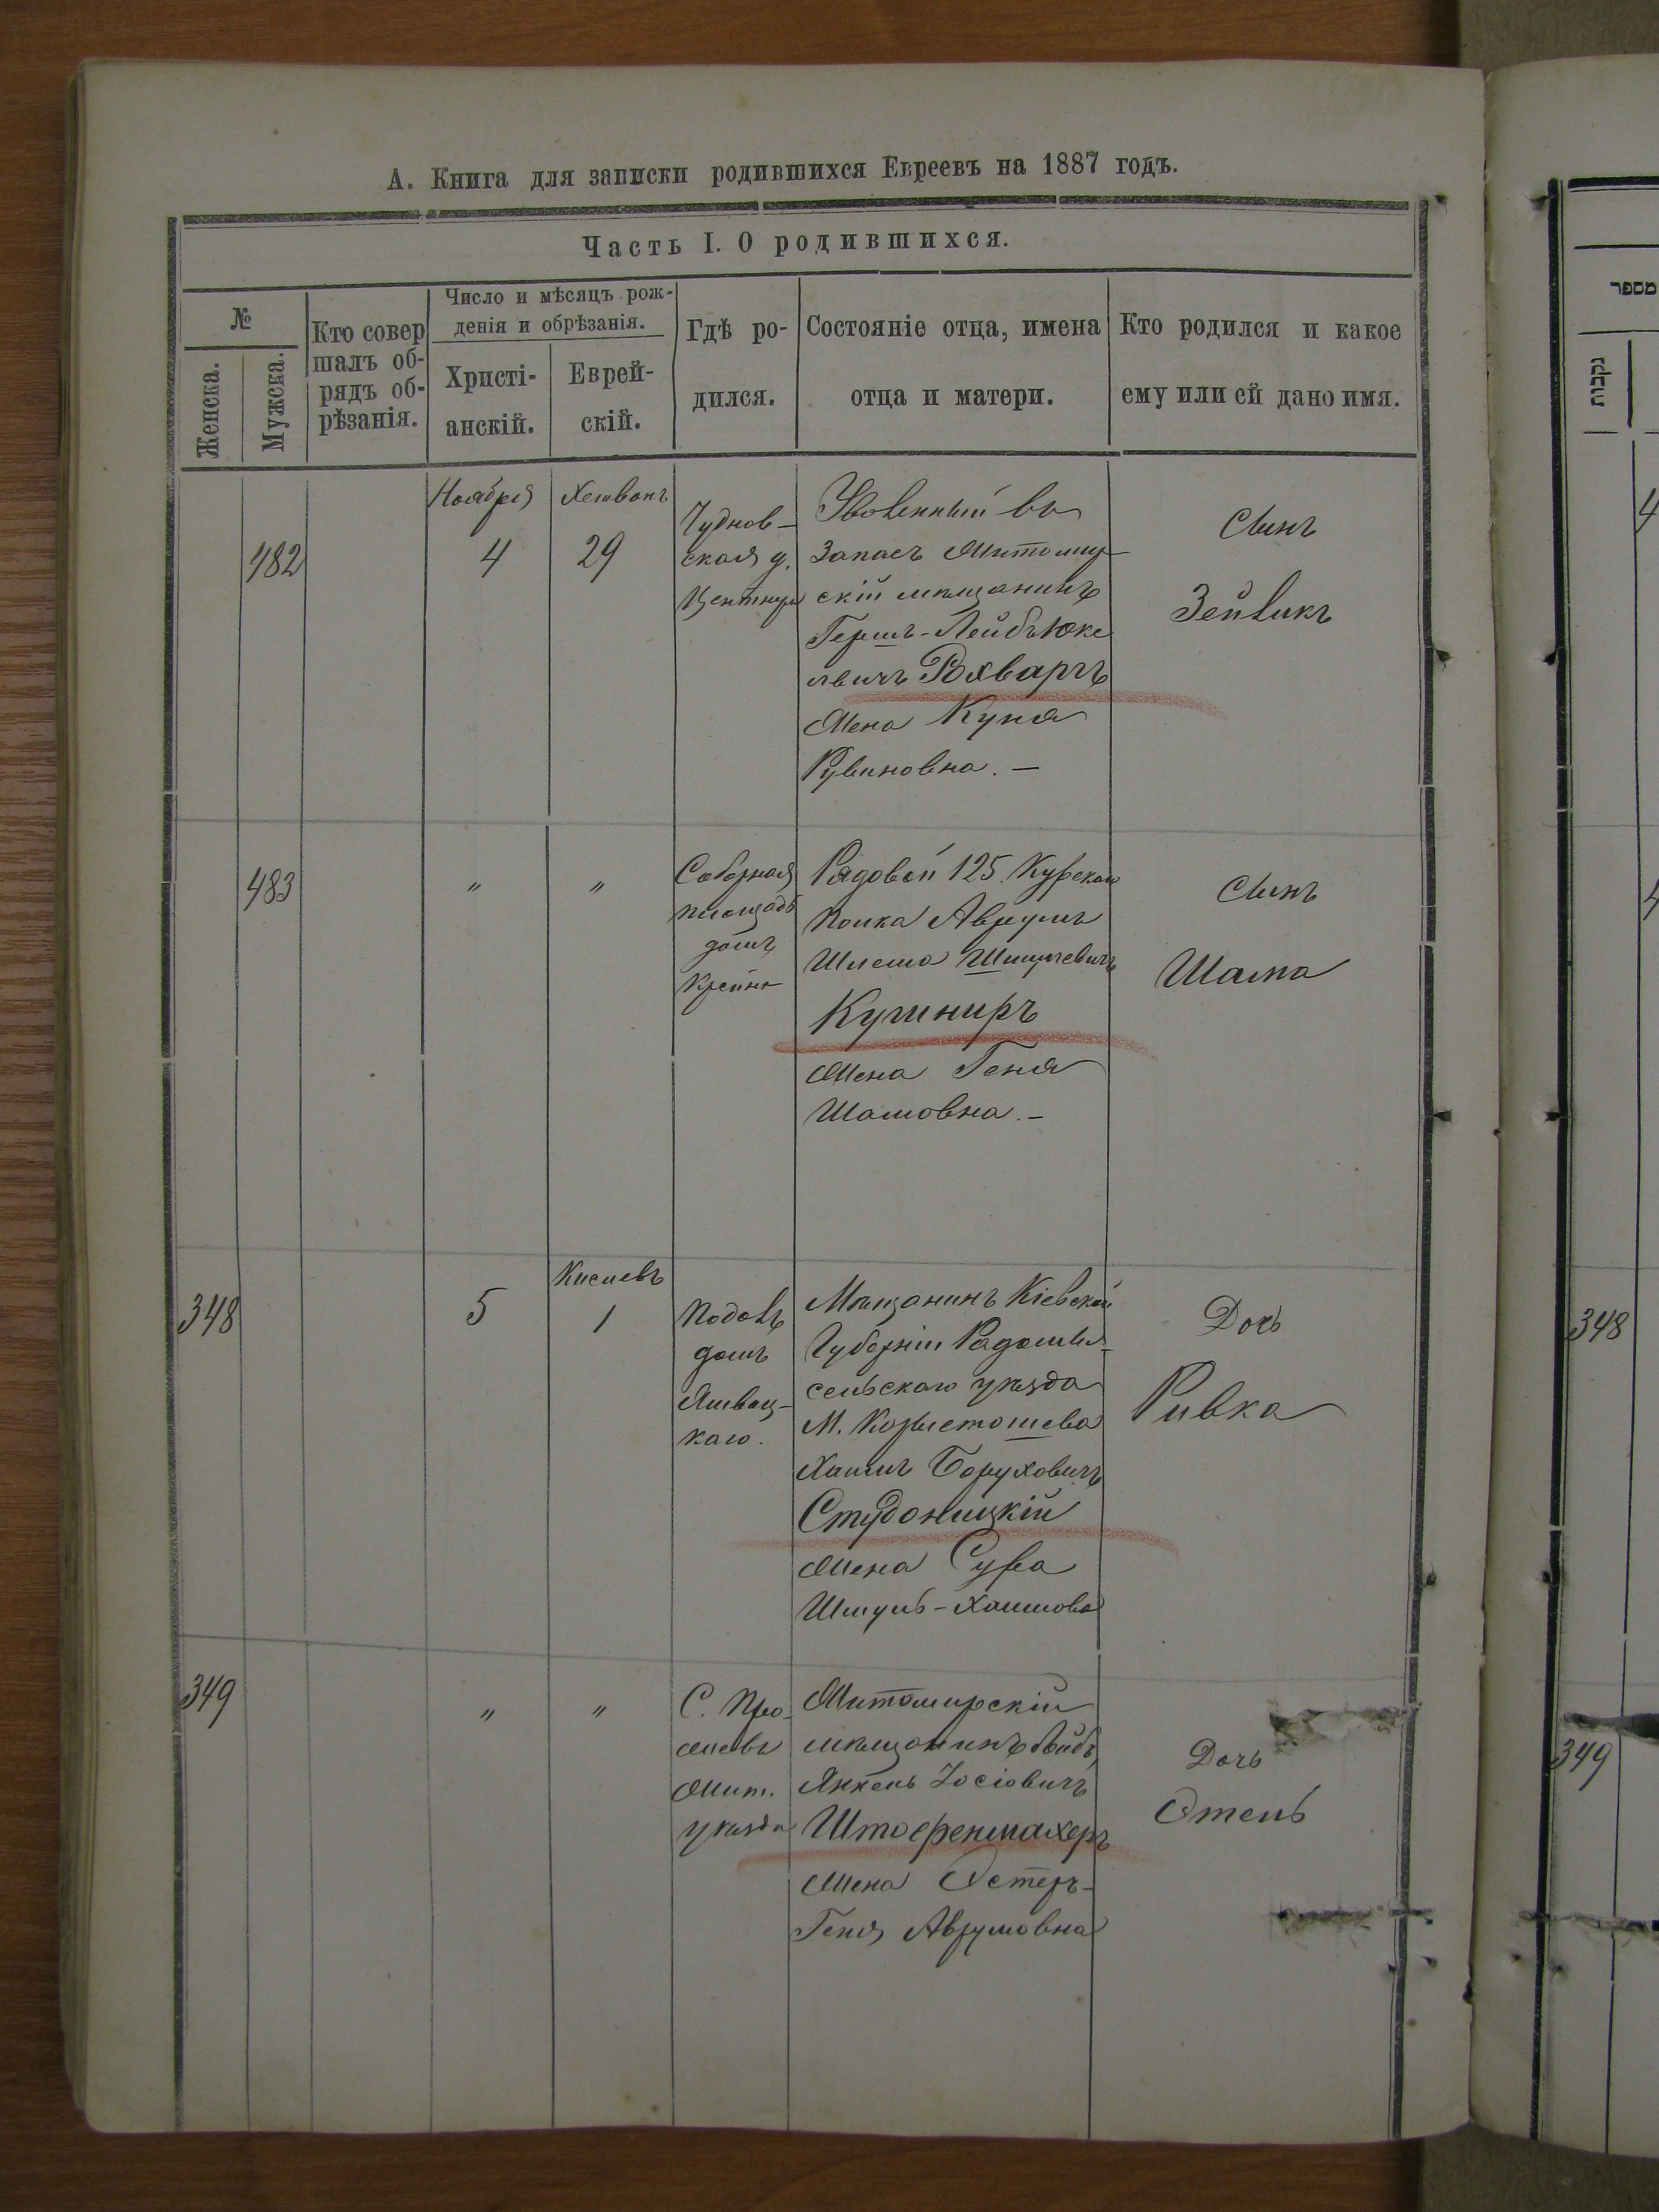 А. Книга для записки родившихся Евреевъ на 1887 годъ.
Часть I. О родившихся.
№
Женска.
Мужска.
Кто совер
шалъ об-
рядъ об-
рѣзанія.
Число и мѣсяцъ рож-
денія и обрѣзанія.
Христі-
анскій.
Еврей-
скій.
Гдѣ ро-
дился.
Состояніе отца, имена
отца и матери.
Кто родился и какое
ему или ей дано имя.
482
Ноября
4
Хешванъ
29
Чуднов-
ская у.
Уволенный въ
Запасъ Житомир-
скій мѣщанинъ
Гершъ-Лейбъ Юке
левичъ
Жена Куня
Рувиновна. —
Сынъ
Зейликъ
483
"
"
Соборная
площадь
домъ
Крейна
Рядовой 125. Курскаго
Полка Аврумъ
Шлема Шмулевичъ
Кушниръ
Жена Геня
Шамовна. —
Сынъ
Шама
348
5
Кислевъ
1
Подолъ
домъ
каго.
Мѣщанинъ Кіевской
Губерніи Радомы-
сельскаго уѣзда
М. Коростошева
Хаимъ Боруховичъ
Студоницкій
Жена Сура
Шмуль-Хаимова
Дочь
Ривка
349
"
"
С.
Жит.
уѣзда
Житомирскій
мѣщанинъ Лейбъ
Янкель Іосіовичъ
Штофенмахеръ
Жена Эстеръ-
Геня Аврумовна
Дочь
Этель
מספר
נקבות
4
4
348
349